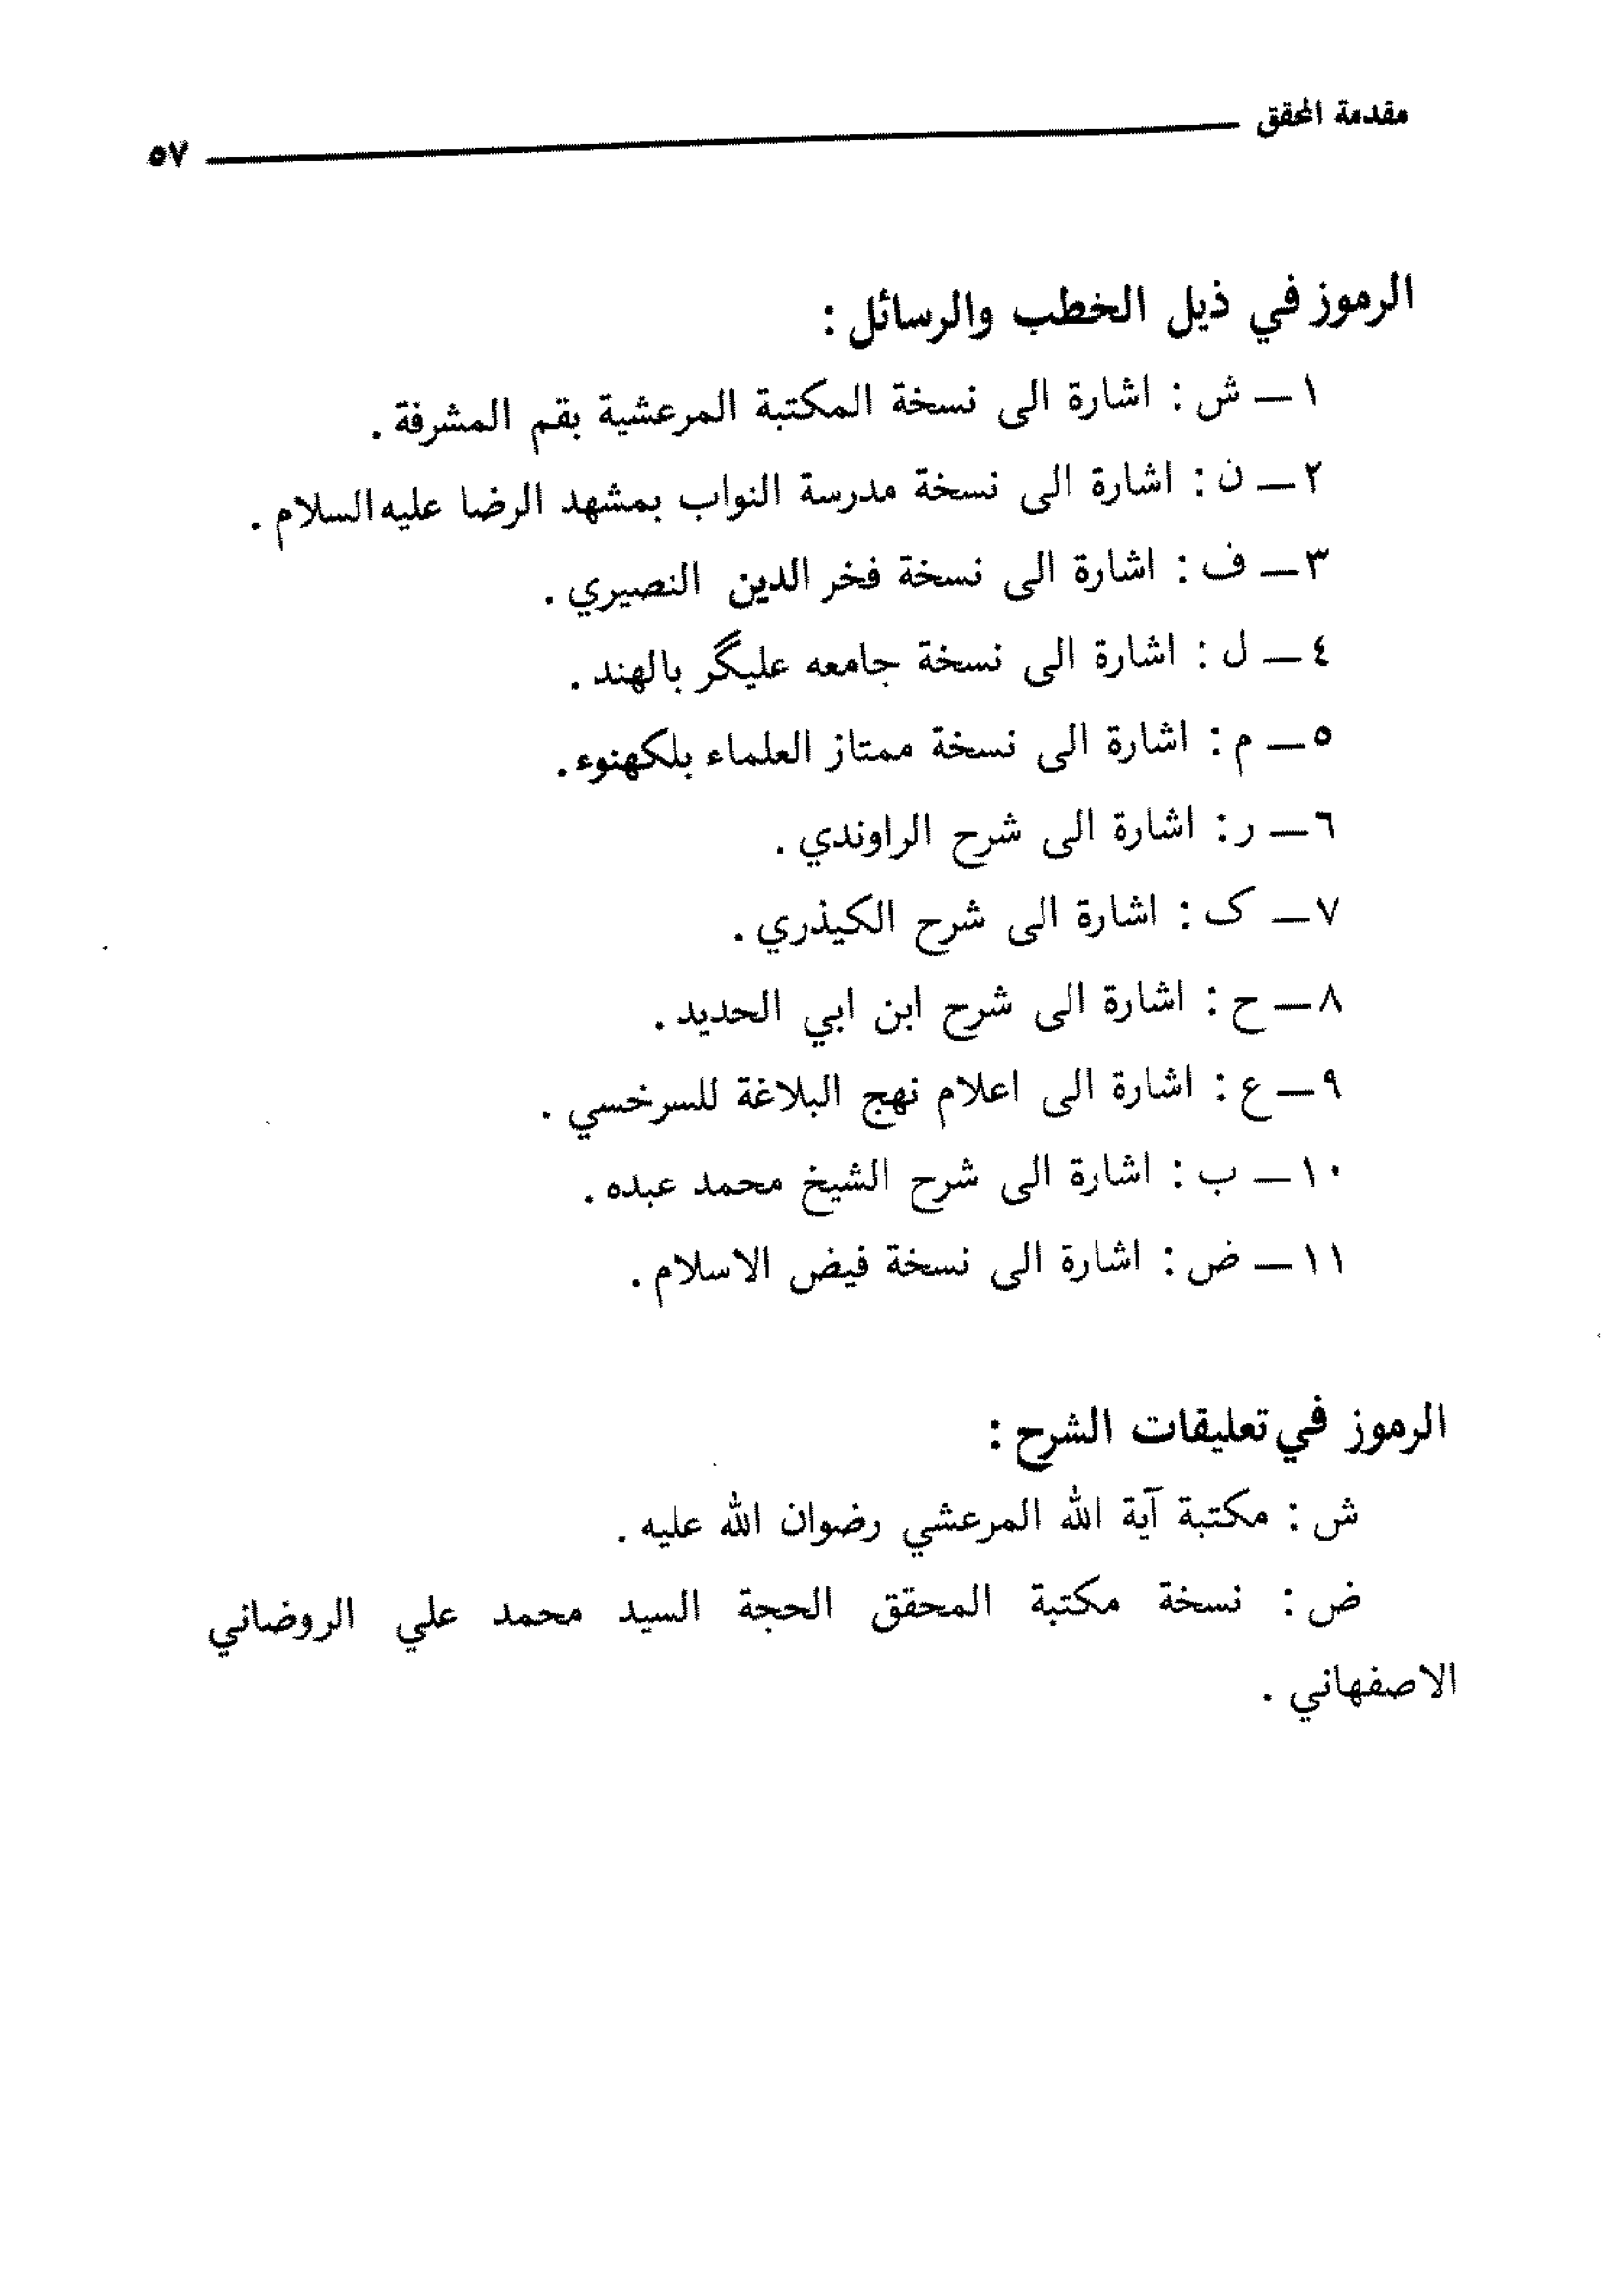 مقدمة المحقق ٥٧
الرموز في ذيل الخطب والرسائل :
١ـ ش : اشارة الى نسخة المكتبة المرعشية بقم المشرفة .
٢ـ ن : اشارة الى نسخة مدرسة النواب بمشهد الرضا عليه السلام .
٣ـ ف : اشارة الى نسخة فخر الدين النصيري .
٤ـ ل : اشارة الى نسخة جامعه عليگر بالهند .
٥ـ م : اشارة الى نسخة ممتاز العلماء بلكهنوء .
٦ـ ر : اشارة الى شرح الراوندي .
٧ـ ک : اشارة الى شرح الكيذري .
٨ـ ح : اشارة الى شرح ابن ابي الحديد .
٩ـ ع : اشارة الى اعلام نهج البلاغة للسرخسي .
١٠ـ ب : اشارة الى شرح الشيخ محمد عبده .
١١ـ ض : اشارة الى نسخة فيض الاسلام .
الرموز في تعليقات الشرح :
ش : مكتبة آية الله المرعشي رضوان الله عليه .
ض : نسخة مكتبة المحقق الحجة السيد محمد علي الروضاني
الاصفهاني .